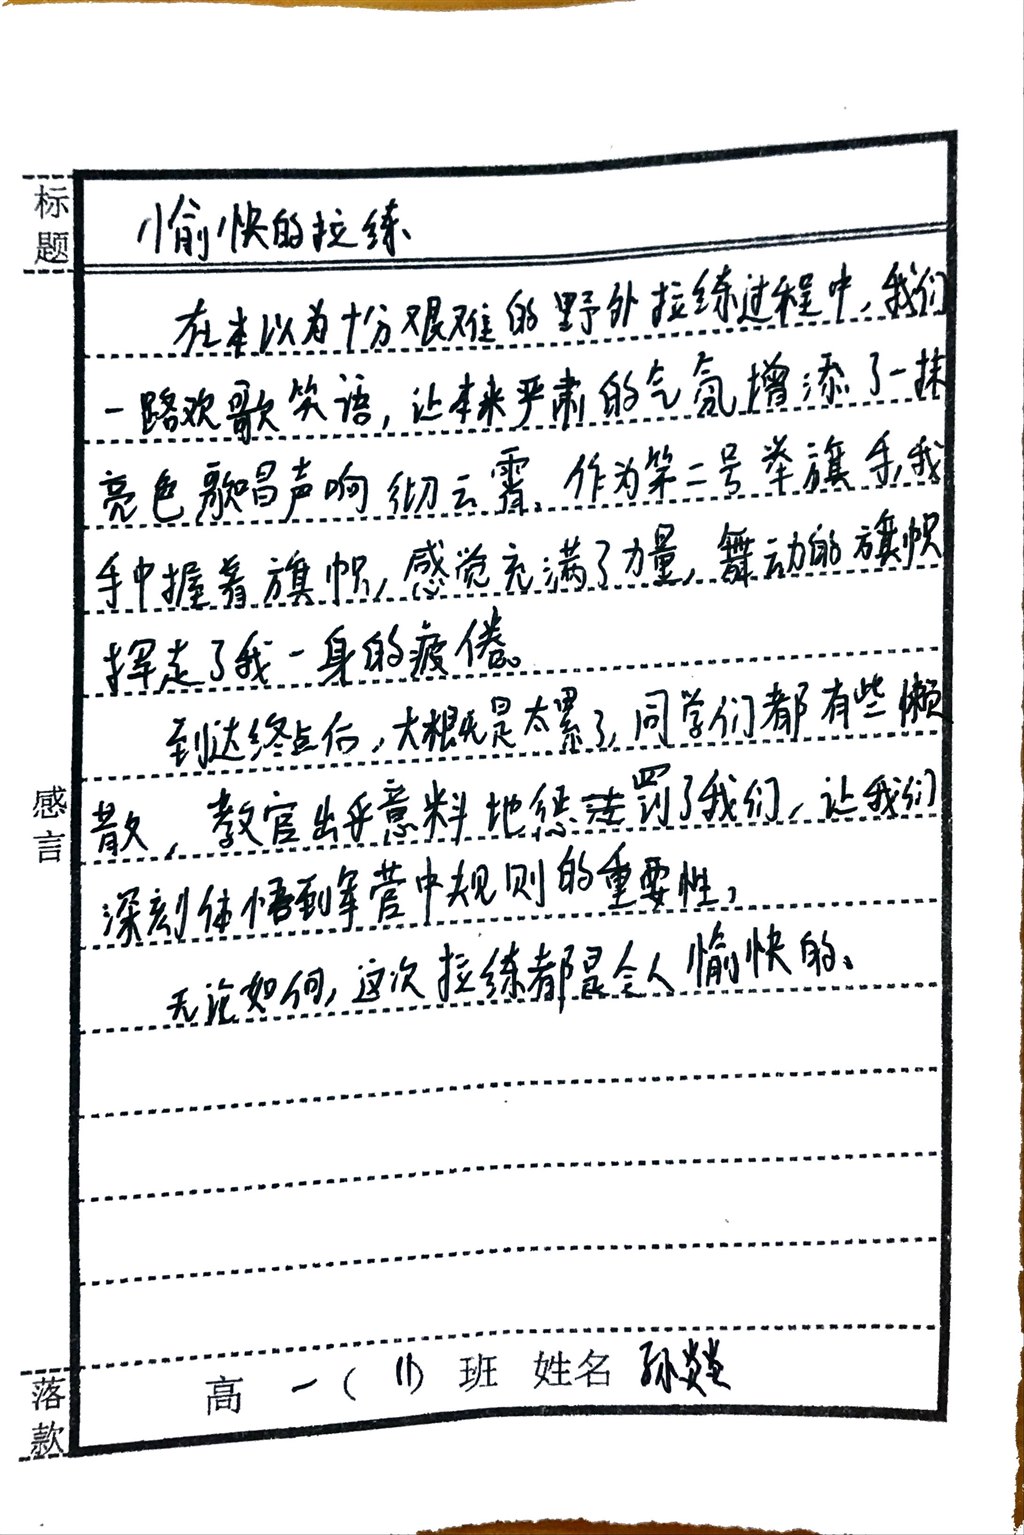 标题
愉快的拉练
在本以为十分艰难的野外拉练过程中,我们
一路欢歌笑语,让本来严肃的气氛增添了一抹
亮色歌唱声响彻云霄。作为第二号举旗手,我
手中握着旗帜,感觉充满了力量,舞动的旗帜
挥走了我一身的疲倦。
到达终点后,大概是太累了,同学们都有些懒
散,教官出乎意料地惩罚了我们,让我们
感言
深刻体悟到军营中规则的重要性,
无论如何,这次拉练都是令人愉快的。
落款
高一(11)班 姓名 孙